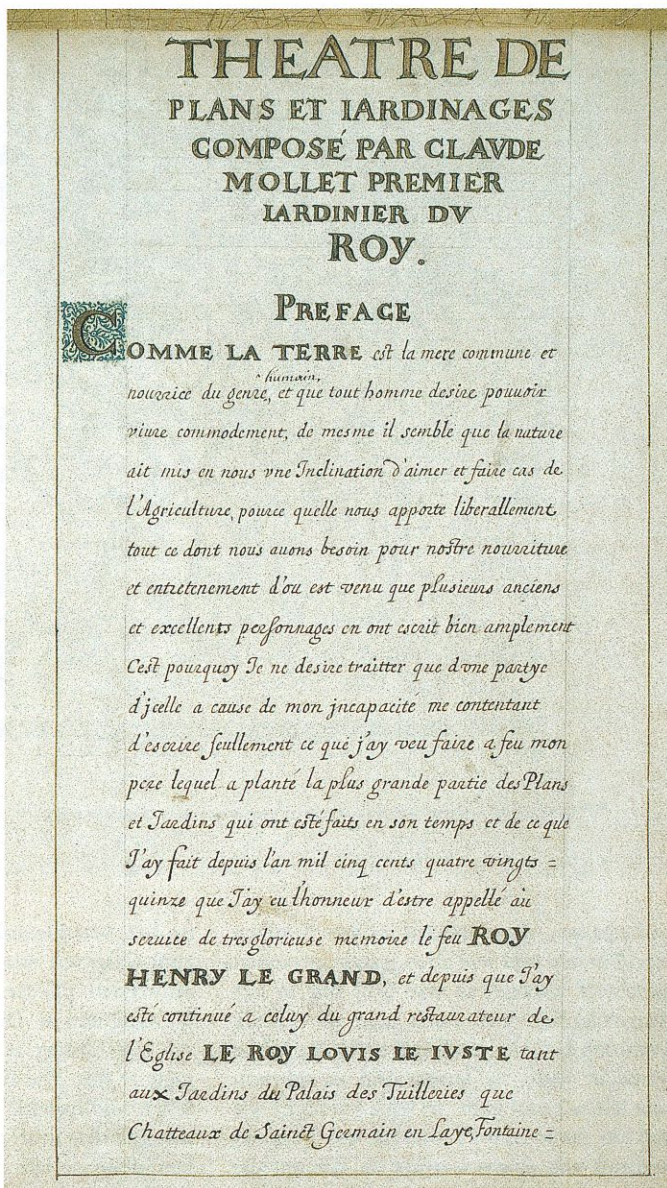 THEATRE DE
PLANS ET IARDINAGES
COMPOSÉ PAR CLAVDE
MOLLET PREMIER
IARDINIER DV
ROY.
PREFACE
COMME LA TERRE est la mere commune et
humain,
nourrice du genre, et que tout homme desire pouuoir
viure commodement, de mesme il semble que la nature
ait mis en nous vne Inclination d'aimer et faire cas de
l'Agriculture, pource quelle nous apporte liberallement
tout ce dont nous auons besoin pour nostre nourriture
et entretenement d'ou est venu que plusieurs anciens
et excellents personnages en ont escrit bien amplement
C'est pourquoy Je ne desire traitter que d'vne partye
d'jcelle a cause de mon jncapacité me contentant
d'escrire seullement ce que j'ay veu faire a feu mon
pere lequel a planté la plus grande partie des Plans
et Jardins qui ont esté faits en son temps et de ce que
J'ay fait depuis l'an mil cinq cents quatre vingts =
quinze que J'ay eu l'honneur d'estre appellé au
seruice de tres glorieuse memoire le feu ROY
HENRY LE GRAND, et depuis que J'ay
esté continué a celuy du grand restaurateur de
l'Eglise LE ROY LOVIS LE IVSTE tant
aux Jardins du Palais des Tuilleries que
Chatteaux de Sainct Germain en Laye, Fontaine =